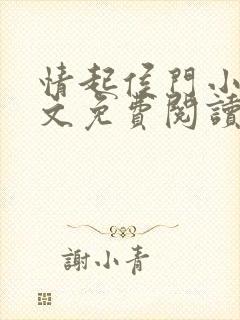 情起侯門小
文免費閱讀
謝小青